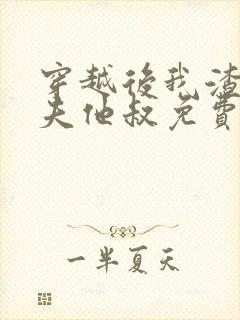 穿越後我渣
夫他叔免費
一半夏天